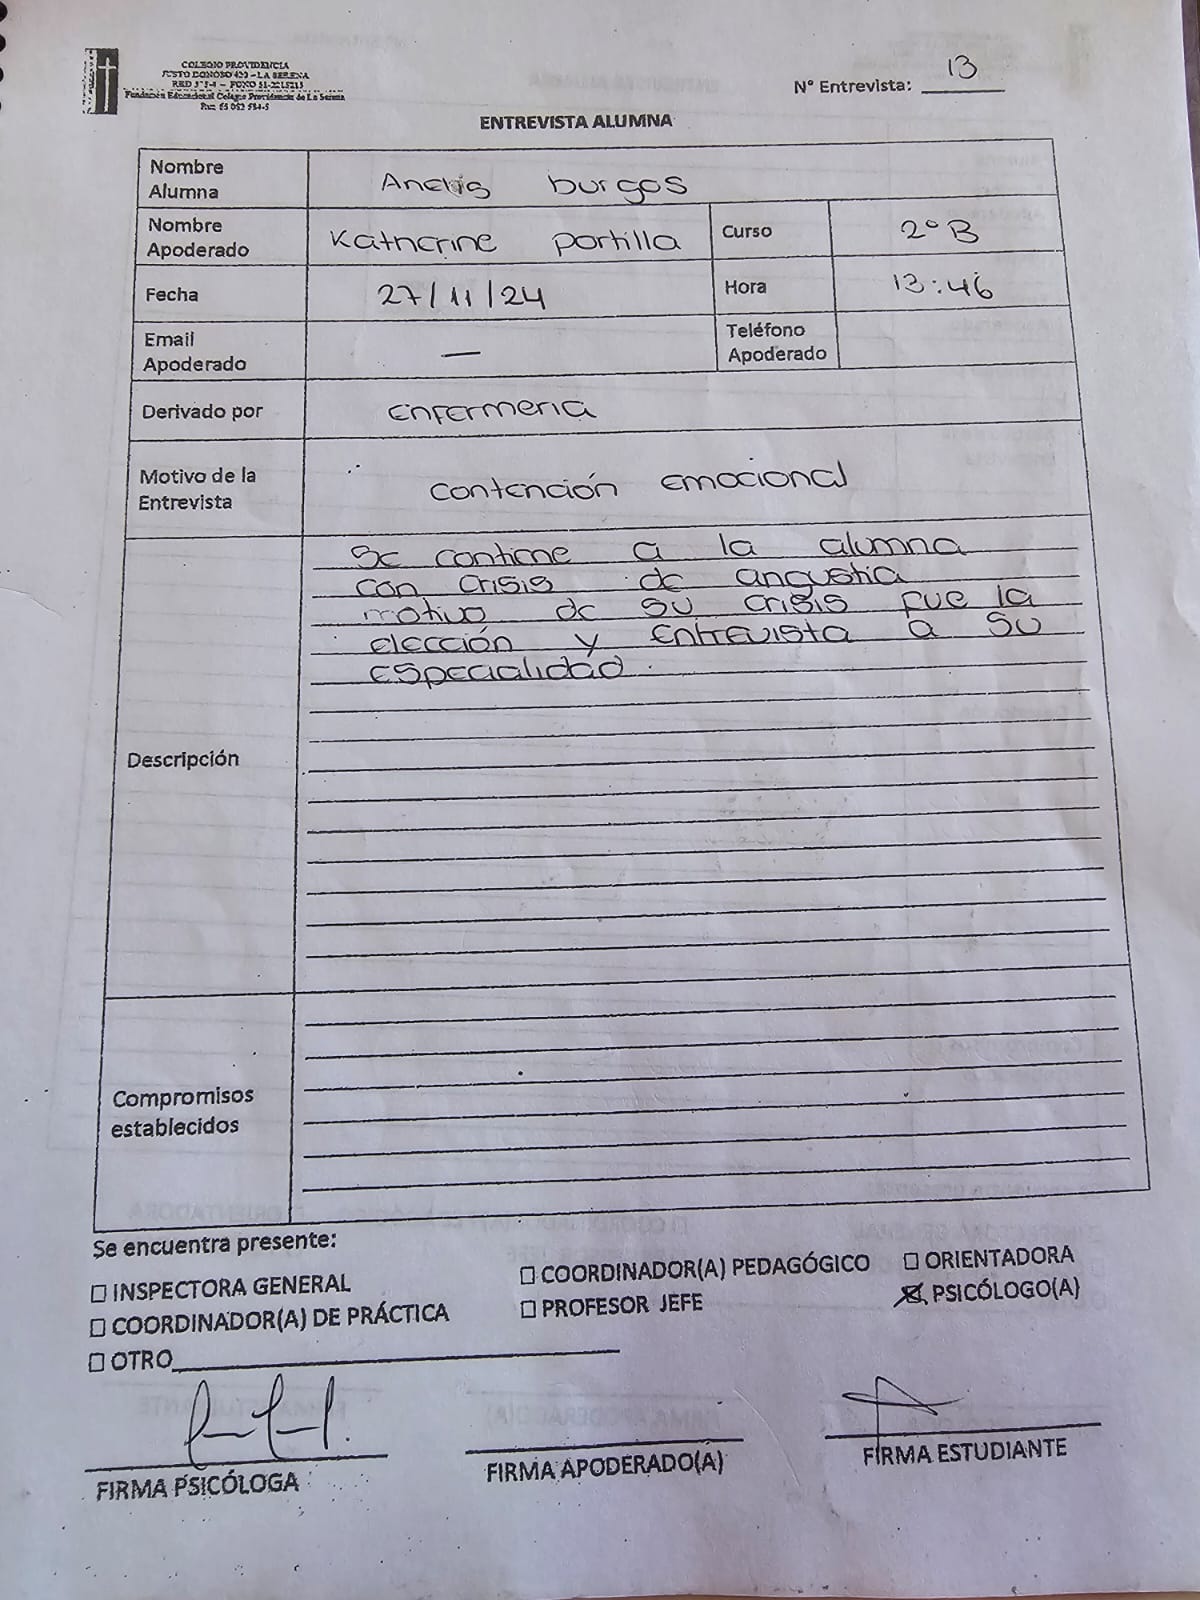 COLEGIO PROVIDENCIA
JUSTO DONOSO 420 – LA SERENA
FONO 51-2215213
Fundación Educacional Colegio Providencia de La Serena
N° Entrevista: 13
ENTREVISTA ALUMNA
Nombre Alumna burgos
Nombre Apoderado Katherine portilla Curso 2° B
Fecha 27/11/24 Hora 13:46
Email Apoderado — Teléfono Apoderado
Derivado por Enfermeria
Motivo de la Entrevista contención Emocional
Descripción
Se contiene a la alumna
con crisis de angustia
motivo de su crisis fue la
elección y Entrevista a su
Especialidad.
Compromisos establecidos
Se encuentra presente:
☐ INSPECTORA GENERAL ☐ COORDINADOR(A) PEDAGÓGICO ☐ ORIENTADORA
☐ COORDINADOR(A) DE PRÁCTICA ☐ PROFESOR JEFE ☒ PSICÓLOGO(A)
☐ OTRO
FIRMA PSICÓLOGA FIRMA APODERADO(A) FIRMA ESTUDIANTE